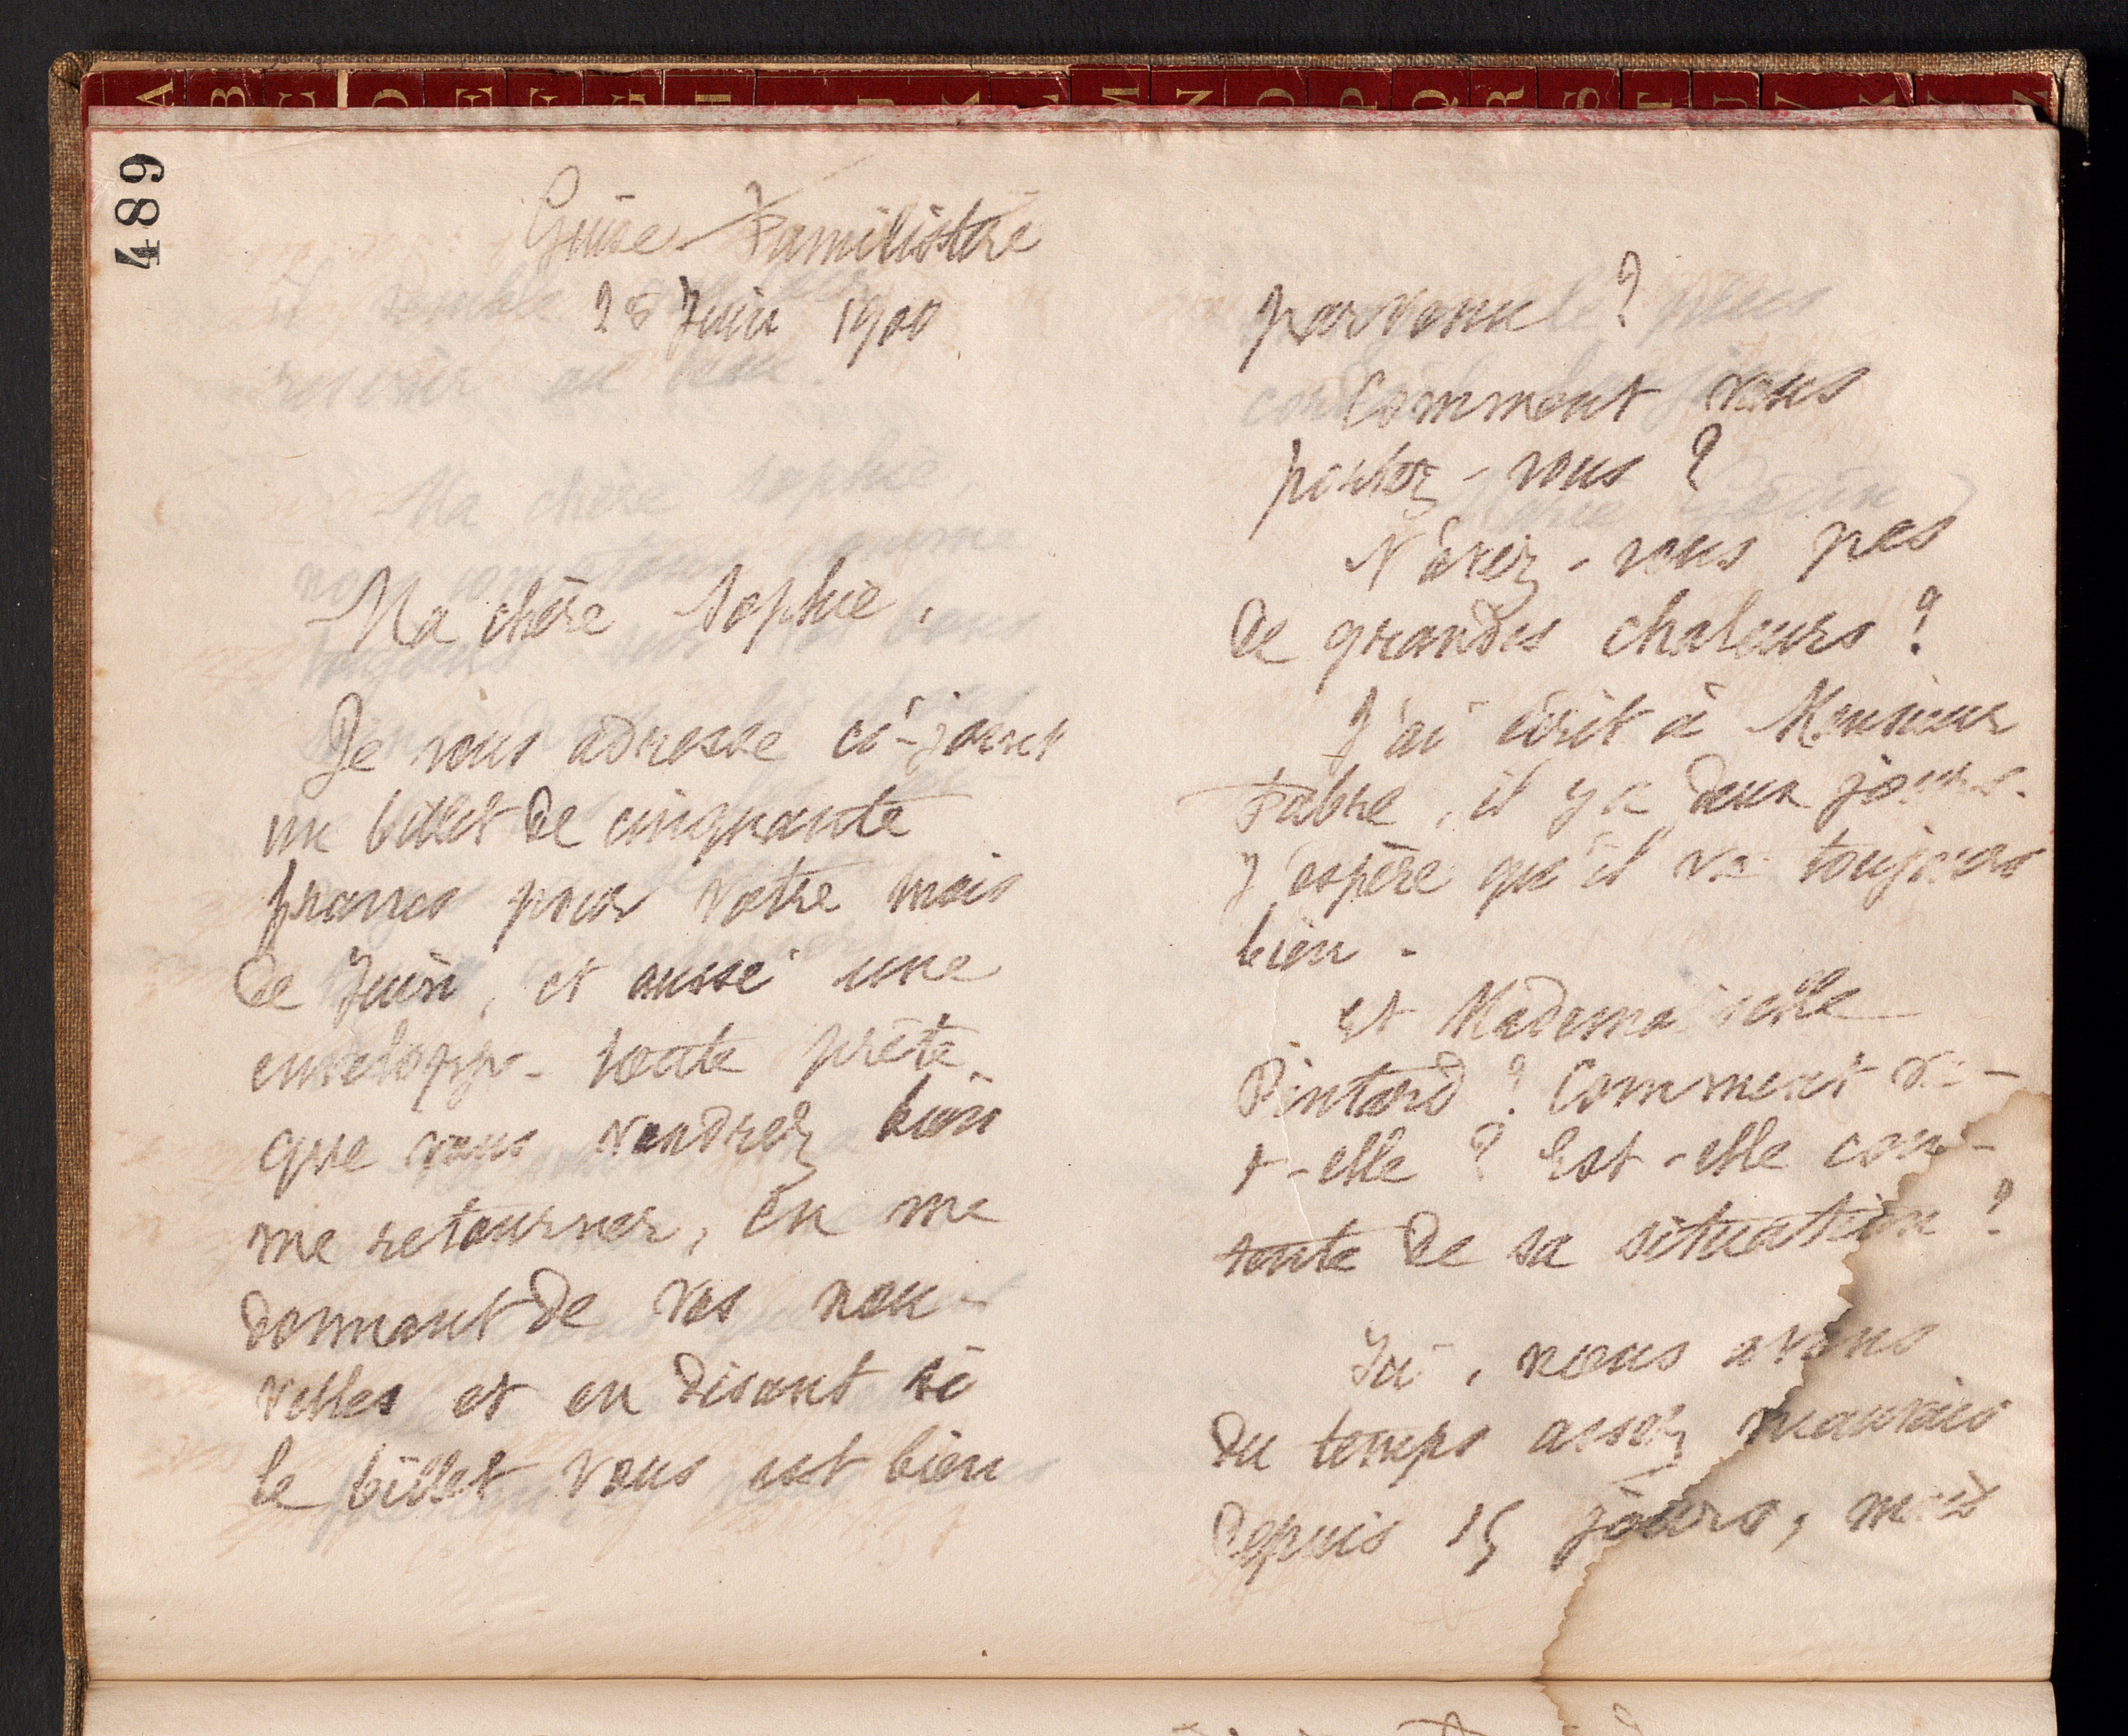 A B C D E F G H I J K L M N O P Q R S T U V X Y Z
489
Guise Familistère
28 Juin 1900
Ma chère Sophie,
Je vous adresse ci-joint
un billet de cinquante
francs pour votre mois
de Juin, et aussi une
enveloppe toute prête
que vous voudrez bien
me retourner, en me
donnant de vos nou-
velles et en disant si
le billet vous est bien
parvenu ?
Comment vous
portez-vous ?
N'avez-vous pas
de grandes chaleurs ?
J'ai écrit à Monsieur
Fabre, il y a deux jours.
J'espère qu'il va toujours
bien.
Et Mademoiselle
Pintard ? Comment va-
t-elle ? Est-elle con-
tente de sa situation ?
Ici, nous avons
du temps assez mauvais
depuis 15 jours, mais